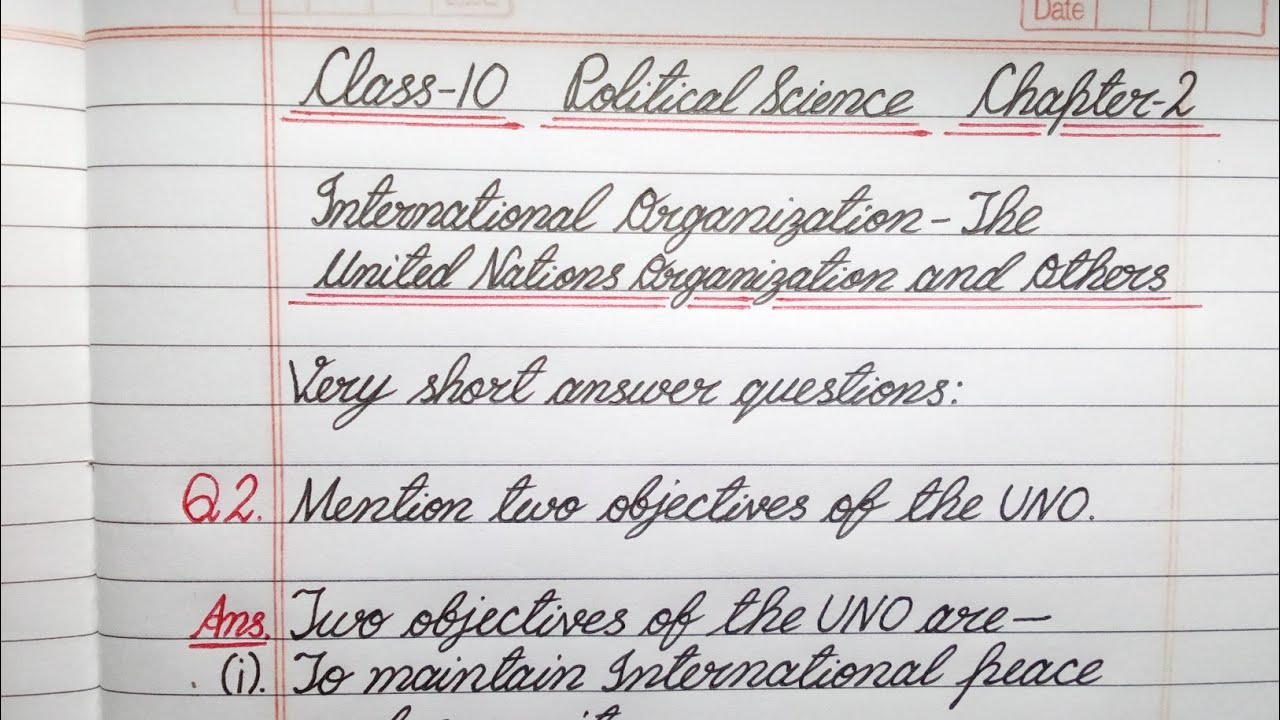 Date
Class-10 Political Science Chapter-2
International Organization - The
United Nations Organization and Others
Very short answer questions:
Q2. Mention two objectives of the UNO.
Ans. Two objectives of the UNO are—
(i). To maintain International peace